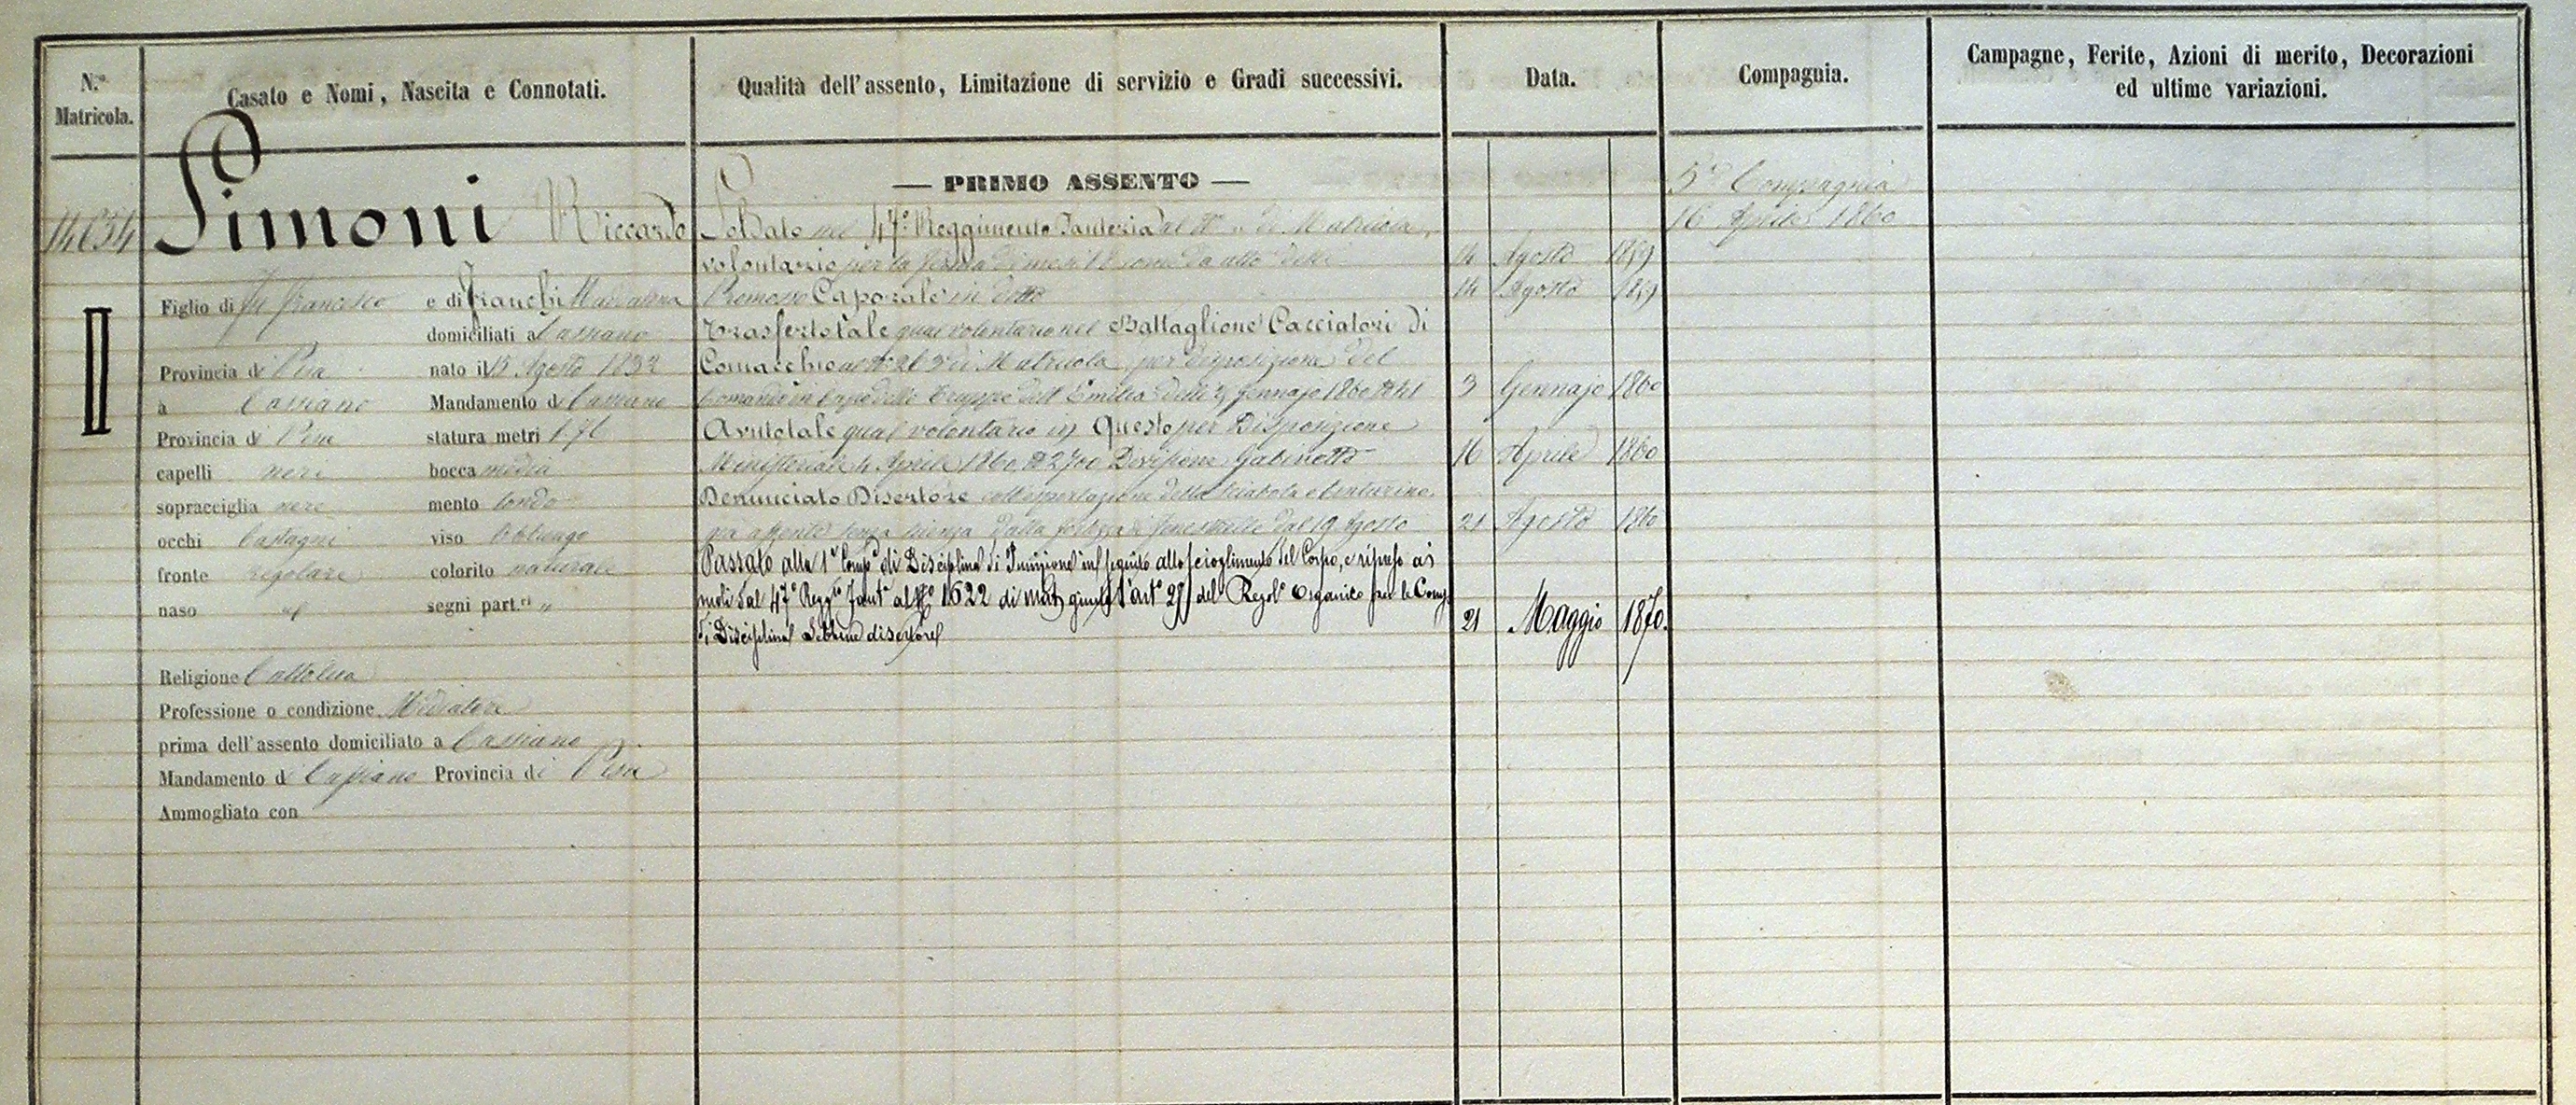 N.º Matricola.
Casato e Nomi, Nascita e Connotati.
Qualità dell'assento, Limitazione di servizio e Gradi successivi.
Data.
Compagnia.
Campagne, Ferite, Azioni di merito, Decorazioni
ed ultime variazioni.
14634
Simoni Riccardo
II
Figlio di fu Francesco e di Franchi Maddalena
domiciliati a Cassiano
Provincia di Pisa nato il 15 Agosto 1832
à Cassiano Mandamento di Cassiano
Provincia di Pisa statura metri 1.71
capelli neri bocca media
sopracciglia nere mento tondo
occhi Castagni viso Oblungo
fronte regolare colorito naturale
naso id segni part.ri "
Religione Cattolica
Professione o condizione Mediatore
prima dell'assento domiciliato a Cassiano
Mandamento di Cassiano Provincia di Pisa
Ammogliato con
— PRIMO ASSENTO —
Soldato nel 47º Reggimento Fanteria al Nº " di Matricola,
volontario per la ferma di mesi 18 come da atto delli 14 Agosto 1859
Promosso Caporale in detto 14 Agosto 1859
Trasferto tale qual volontario nel Battaglione Cacciatori di
Comacchio al Nº 263 di Matricola, per disposizione del
Comando in Capo delle Truppe dell'Emilia delli 3 Gennajo 1860 Nº 41 3 Gennajo 1860
Avuto tale qual volontario in Questo per Disposizione
Ministeriale 4 Aprile 1860 Nº 2700 Divisione Gabinetto 16 Aprile 1860
Denunciato Disertore coll'esportazione della sciabola e centurino.
già assente senza licenza dalla fortezza di Fenestrelle dal 19 Agosto 21 Agosto 1860
Passato alla 1ª Compª di Disciplina di Punizione in seguito allo scioglimento del Corpo, e ripreso a
ruoli dal 47º Reggto Fantª al Nº 1622 di mat giusta l'artº 28 del Regolº Organico per le Comp.
di Disciplina Sebbene disertore 21 Maggio 1870.
5ª Compagnia
16 Aprile 1860